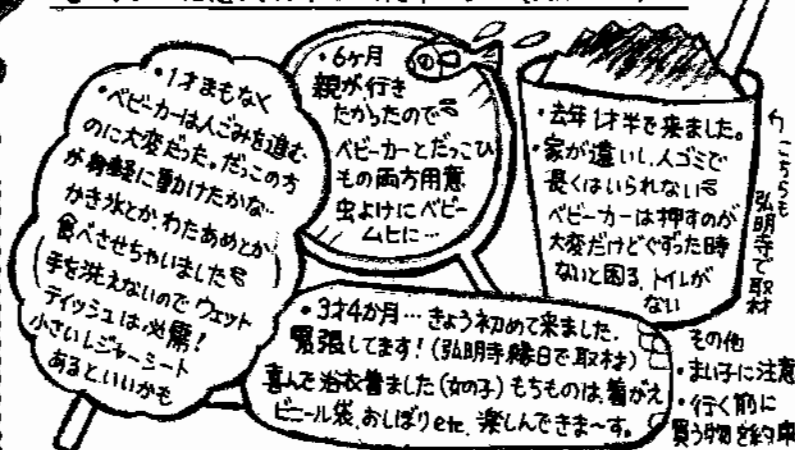 ・1才まもなく
・ベビーカーは人ごみを進む
のに大変だった。だっこの方
が身軽に動けたかな…
かき氷とか、わたあめとか
食べさせちゃいました
(手を洗えないので ウェット
ティッシュは必需!)
小さいレジャーシート
あるといいかも
・6ヶ月
親が行き
たかったので
ベビーカーとだっこひ
もの両方用意
虫よけにベビー
ムヒに…
・去年1才半で来ました。
・家が遠いし、人ゴミで
長くはいられない
ベビーカーは押すのが
大変だけどぐずった時
ないと困る、トイレが
ない
こちらも
弘明寺で取材
・3才4か月…きょう初めて来ました。
緊張してます!(弘明寺縁日で取材)
喜んで浴衣着ました(女の子)もちものは、着がえ
ビニール袋、おしぼりetc. 楽しんできま〜す。
その他
・まい子に注意
・行く前に
買う物を約束